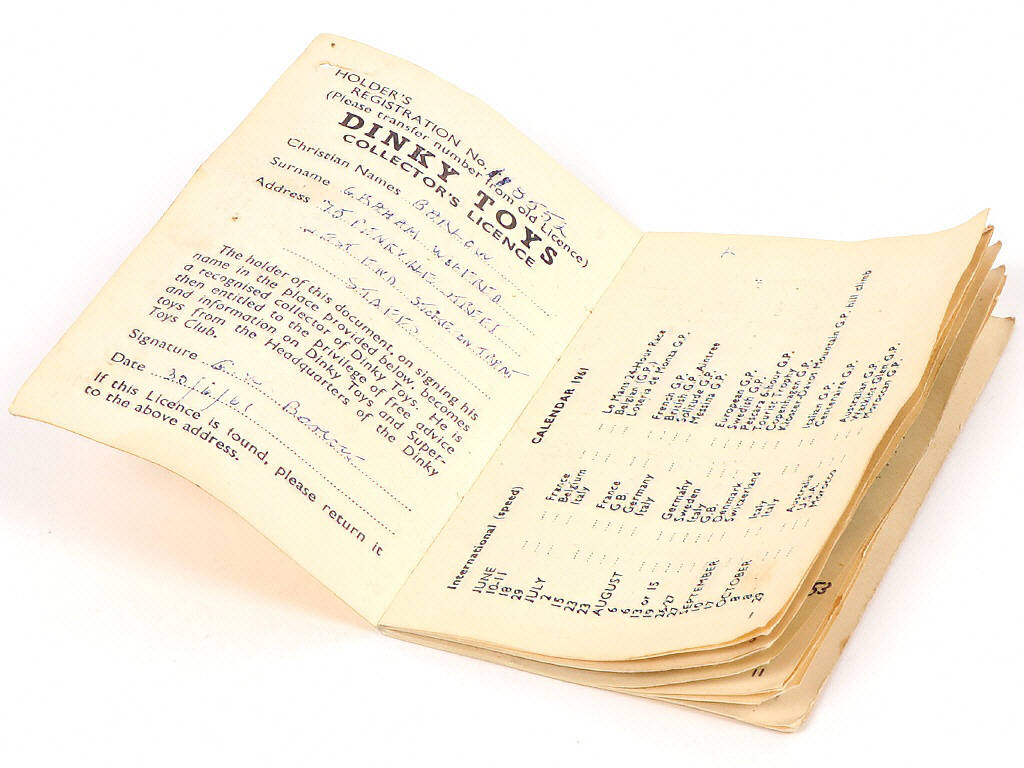 HOLDER'S
REGISTRATION No.
(Please transfer number from old Licence)
DINKY TOYS
COLLECTOR'S LICENCE
Christian Names
Surname
Address 75
STREET
END
The holder of this document, on signing his
name in the place provided below, becomes
a recognised collector of Dinky Toys. He is
then entitled to the privilege of free advice
and information on Dinky Toys and Super-
toys from the Headquarters of the Dinky
Toys Club.
Signature
Date 30/6/61
If this Licence is found, please return it
to the above address.
CALENDAR 1961
International (speed)
JUNE
10-11 France Le Mans 24-Hour Race
18 Belgium Belgian (G.P.)
29 Italy Loteria de Monza G.P.
JULY
2 France French G.P.
15 G.B. British G.P. Aintree
23 Germany Solitude G.P.
23 Italy Messina G.P.
AUGUST
6 Germany European G.P.
6 Sweden Swedish G.P.
13 or 15 Italy Pescara 6-hour G.P.
19 G.B. Tourist Trophy
26/27 Denmark Copenhagen G.P.
27 Switzerland Mountain G.P. hill climb
SEPTEMBER
10 Italy Italian G.P.
17 Italy
OCTOBER
8 Australia Australian G.P.
8 U.S.A. Watkins Glen G.P.
29 Morocco Moroccan G.P.
53
11